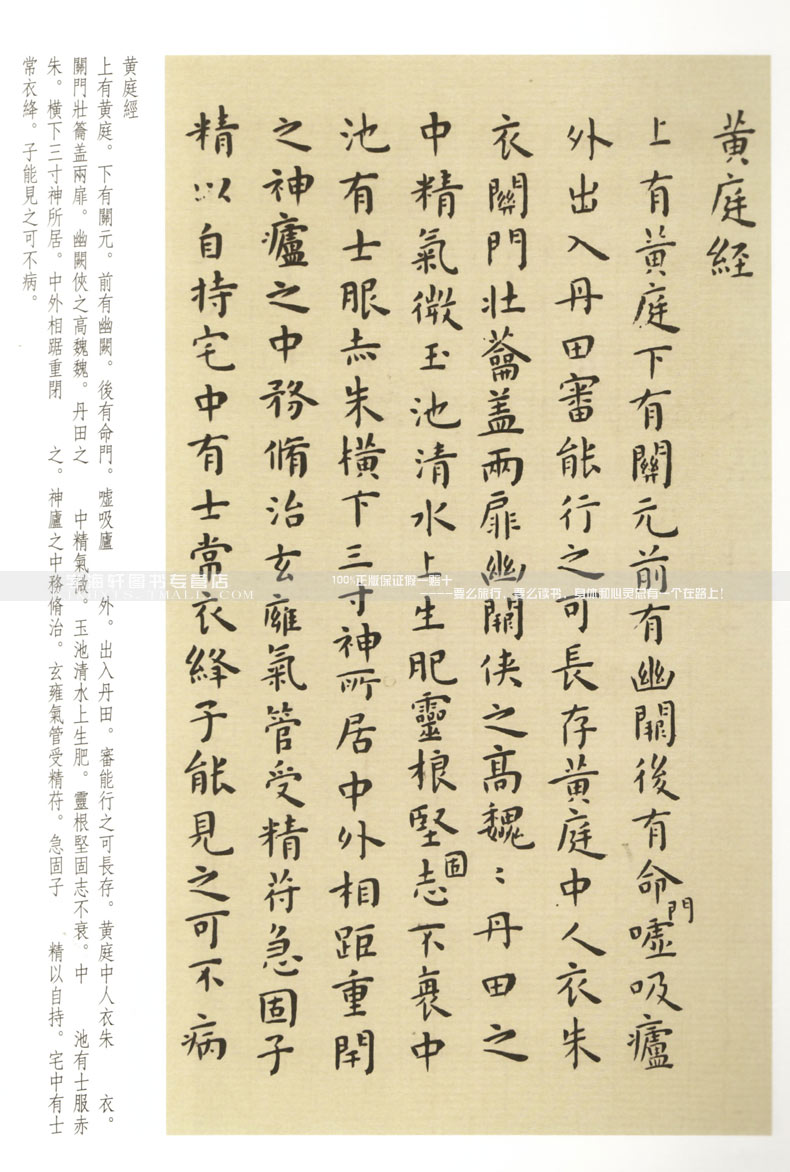 黄庭経
上有黄庭下有關元前有幽闕後有命門噓吸廬
外出入丹田審能行之可長存黄庭中人衣朱
衣關門壯蘥盖兩扉幽闕侠之高魏〻丹田之
中精氣微玉池清水上生肥靈根堅固志不衰中
池有士服赤朱横下三寸神所居中外相距重閉
之神廬之中務脩治玄廱氣管受精苻急固子
精以自持宅中有士常衣絳子能見之可不病
黄庭經
上有黄庭。下有關元。前有幽闕。後有命門。噓吸廬 外。出入丹田。審能行之可長存。黄庭中人衣朱 衣。
關門壯籥盖兩扉。幽闕俠之高魏魏。丹田之 中精氣微。玉池清水上生肥。靈根堅固志不衰。中 池有士服赤
朱。横下三寸神所居。中外相踞重閉 之。神廬之中務脩治。玄雍氣管受精苻。急固子 精以自持。宅中有士
常衣絳。子能見之可不病。
海轩图书专营店
100%正版保证假一赔十
----要么旅行，要么读书，身体和心灵总有一个在路上！